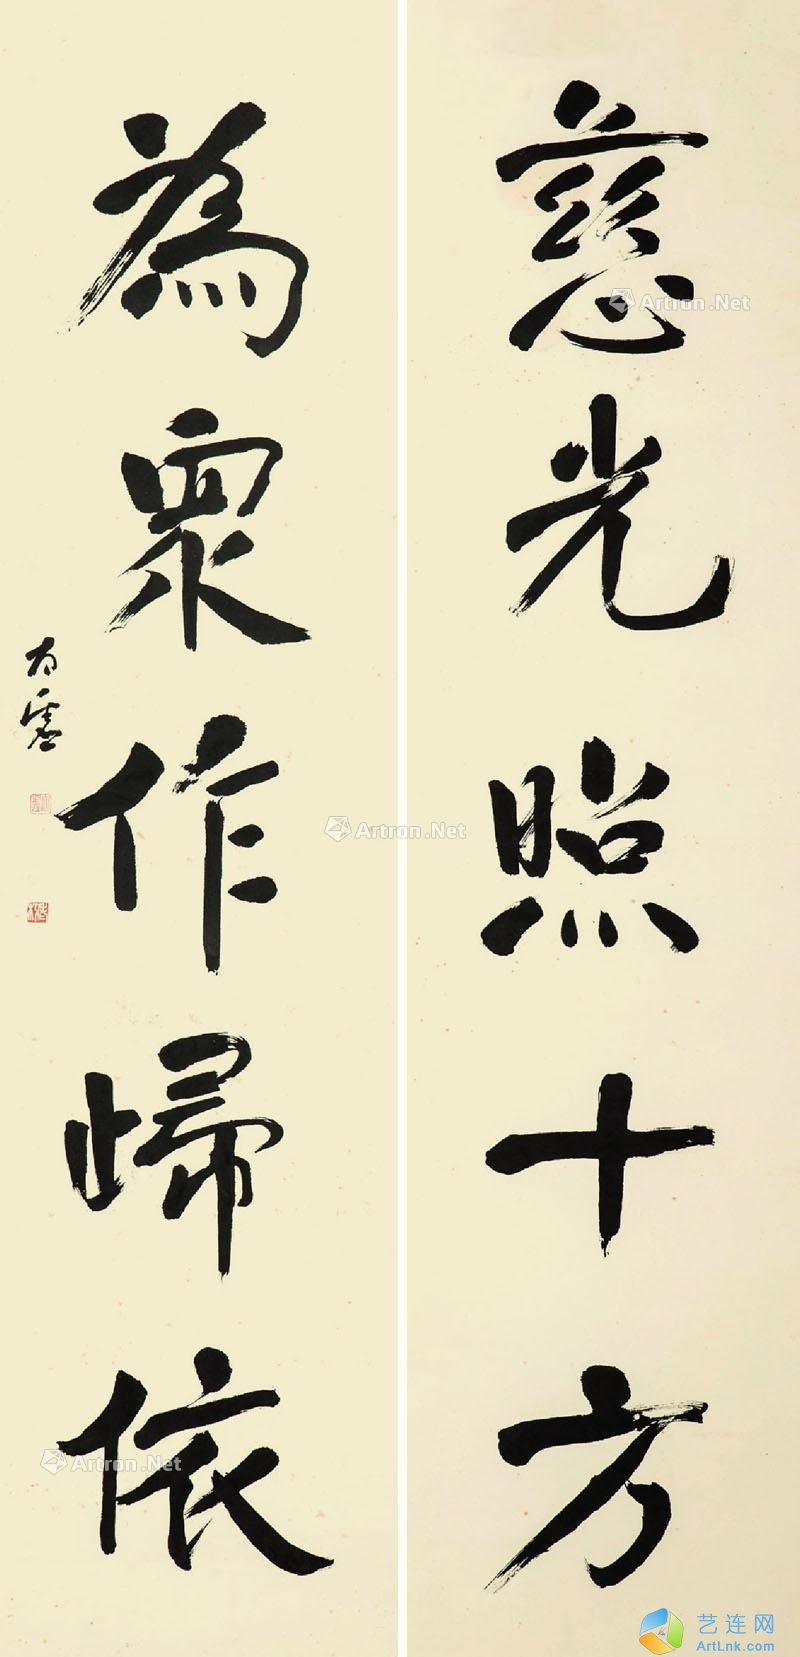 慈光照十方
為眾作歸依
太虛
Artron.Net
Artron.Net
Artron.Net
艺连网
ArtLnk.com